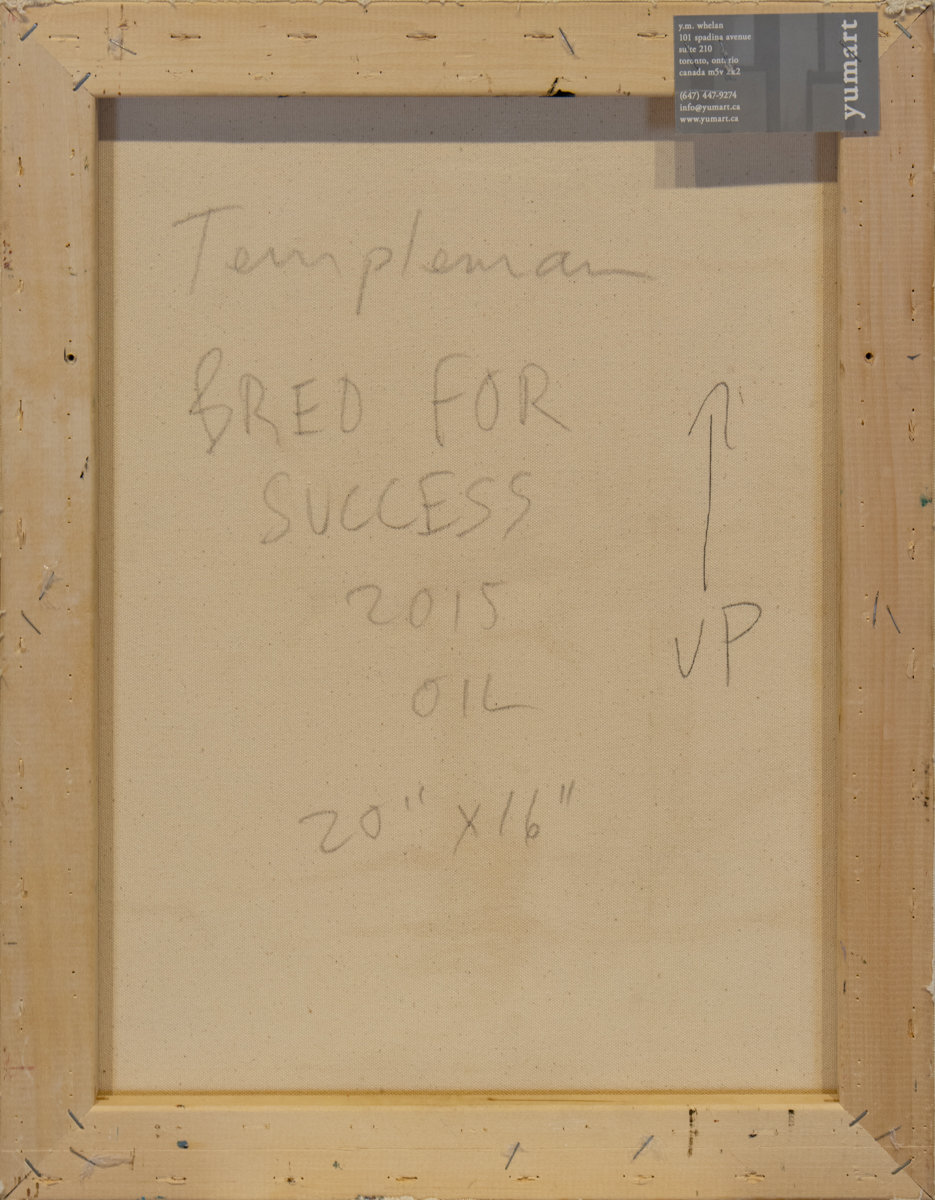 y.m. whelan
101 spadina avenue
suite 210
toronto, ontario
canada m5v 2k2
(647) 447-9274
info@yumart.ca
www.yumart.ca
yumart
Templeman
BRED FOR
SUCCESS
2015
OIL
20" x 16"
UP